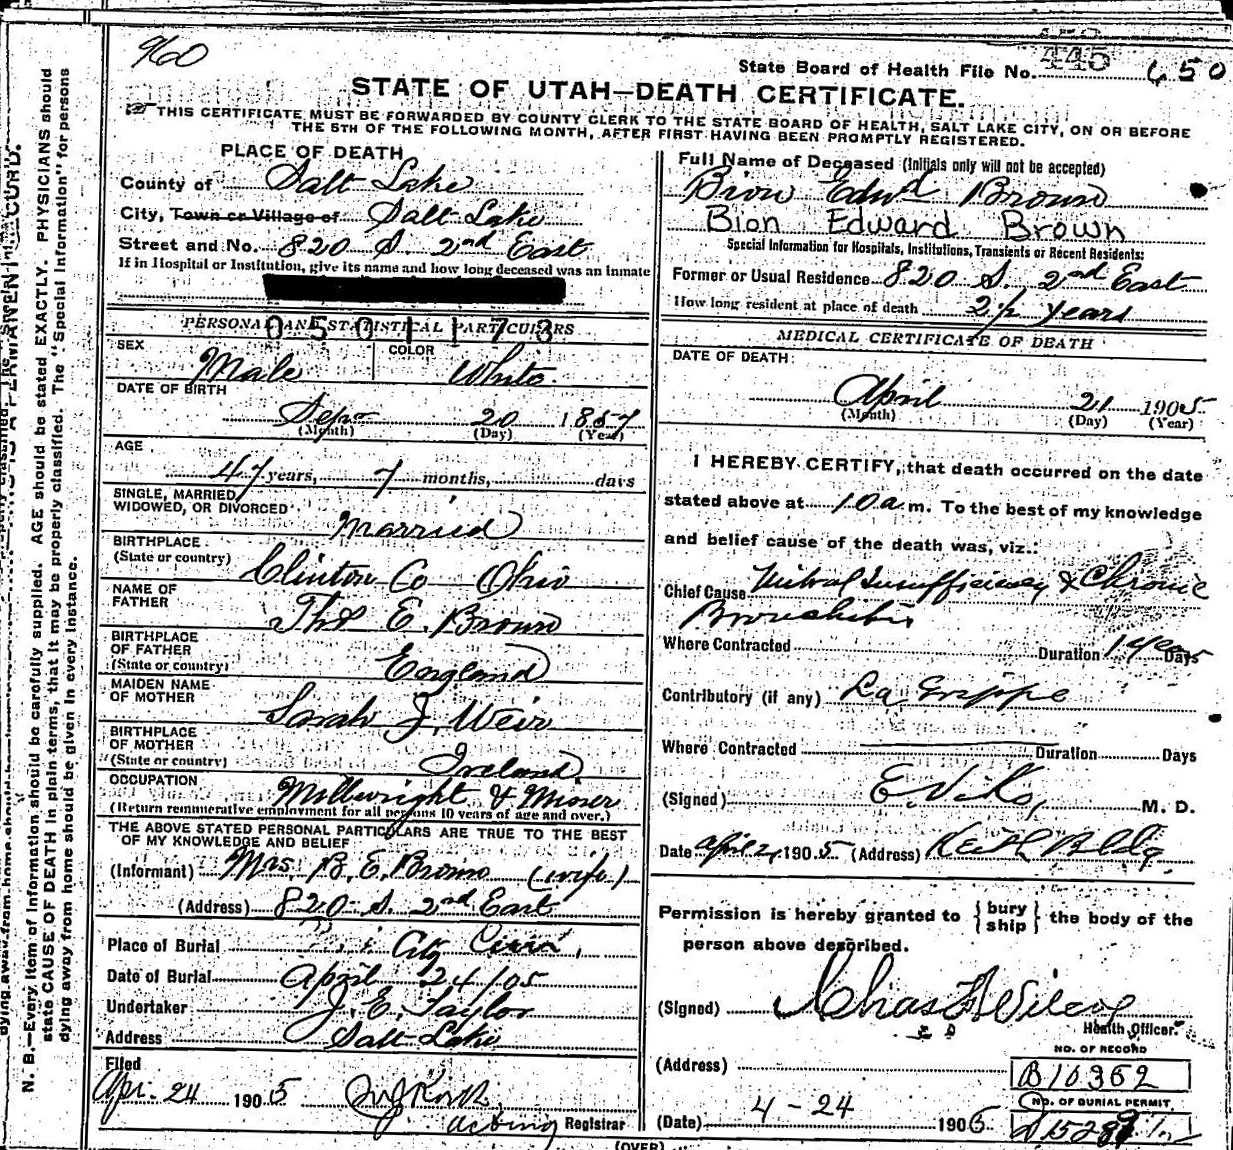 960
State Board of Health File No. 445 650
STATE OF UTAH—DEATH CERTIFICATE.
THIS CERTIFICATE MUST BE FORWARDED BY COUNTY CLERK TO THE STATE BOARD OF HEALTH, SALT LAKE CITY, ON OR BEFORE
THE 5TH OF THE FOLLOWING MONTH, AFTER FIRST HAVING BEEN PROMPTLY REGISTERED.
PLACE OF DEATH
County of Salt Lake
City, Town or Village of Salt Lake
Street and No. 820 S. 2nd East
If in Hospital or Institution, give its name and how long deceased was an inmate
PERSONAL AND STATISTICAL PARTICULARS
0501173
SEX Male COLOR White
DATE OF BIRTH
Sept 20 1857
(Month) (Day) (Year)
AGE
47 years, 7 months, days
SINGLE, MARRIED,
WIDOWED, OR DIVORCED Married
BIRTHPLACE
(State or country) Clinton Co Ohio
NAME OF
FATHER Thos E. Brown
BIRTHPLACE
OF FATHER
(State or country) England
MAIDEN NAME
OF MOTHER Sarah J. Weir
BIRTHPLACE
OF MOTHER
(State or country) Ireland
OCCUPATION Millwright & Miner
(Return remunerative employment for all persons 10 years of age and over.)
THE ABOVE STATED PERSONAL PARTICULARS ARE TRUE TO THE BEST
OF MY KNOWLEDGE AND BELIEF
(Informant) Mrs B. E. Brown (wife)
(Address) 820 S. 2nd East
Place of Burial City Cem,
Date of Burial April 24/05
Undertaker J. E. Taylor
Address Salt Lake
Filed
Apr. 24 1905
acting Registrar
Full Name of Deceased (Initials only will not be accepted)
Bion Edwd Brown
Bion Edward Brown
Special Information for Hospitals, Institutions, Transients or Recent Residents:
Former or Usual Residence 820 S. 2nd East
How long resident at place of death 2½ years
MEDICAL CERTIFICATE OF DEATH
DATE OF DEATH:
April 21 1905
(Month) (Day) (Year)
I HEREBY CERTIFY, that death occurred on the date
stated above at 10 a m. To the best of my knowledge
and belief cause of the death was, viz.:
Chief Cause Mitral Insufficiency & Chronic
Bronchitis
Where Contracted Duration 1 year Days
Contributory (if any) La Grippe
Where Contracted Duration Days
(Signed) M. D.
Date April 2, 1905 (Address) Keith Bldg
Permission is hereby granted to { bury
ship } the body of the
person above described.
(Signed) Chas F Wilcox
Health Officer.
(Address)
(Date) 4-24 1905
NO. OF RECORD
B10362
NO. OF BURIAL PERMIT
(OVER)
N. B.—Every item of information should be carefully supplied. AGE should be stated EXACTLY. PHYSICIANS should
state CAUSE OF DEATH in plain terms, that it may be properly classified. The "Special Information" for persons
dying away from home should be given in every instance.